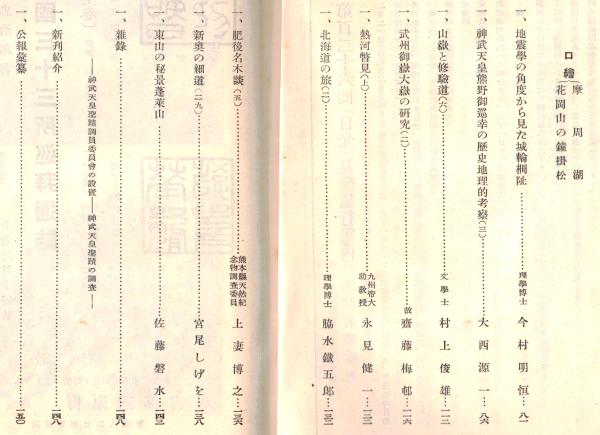 口繪 摩周湖
花岡山の鐘掛松
一、地震學の角度から見た城輪柵阯 理學博士 今村明恒 八一
一、神武天皇熊野御巡幸の歴史地理的考察(三) 大西源一 八六
一、山嶽と修驗道(六) 文學士 村上俊雄 一一二
一、武州御嶽大嶽の研究(二) 故 齋藤梅邨 一一六
一、熱河瞥見(上) 九州帝大助教授 永見健一 一二二
一、北海道の旅(二) 理學博士 脇水鐵五郎 一三二
一、肥後名木談(五) 熊本縣天然紀念物調査委員 上妻博之 一三六
一、新奥の細道(二九) 宮尾しげを 一三八
一、東山の秘景蓬萊山 佐藤磐水 一四三
一、雜錄 一四八
神武天皇聖蹟調査委員會の設置 神武天皇聖蹟の調査
一、新刊紹介 一四八
一、公報彙纂 一五〇